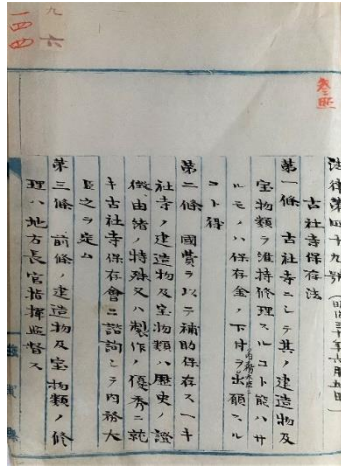 参照
法律第四十九號（明治三十年六月五日）
古社寺保存法
第一條 古社寺ニシテ其ノ建造物及
宝物類ヲ維持修理スルコト能ハサ
ルモノハ保存金ノ下付ヲ内務大臣ニ出願スル
コト得
第二條 國費ヲ以テ補助保存スヘキ
社寺ノ建造物及宝物類ハ歴史ノ證
徴由緒ノ特殊又ハ製作ノ優秀ニ就
キ古社寺保存會ニ諮詢シテ内務大
臣之ヲ定ム
第三條 前條ノ建造物及宝物類ノ修
理ハ地方長官指揮監督ス
九六
一四四